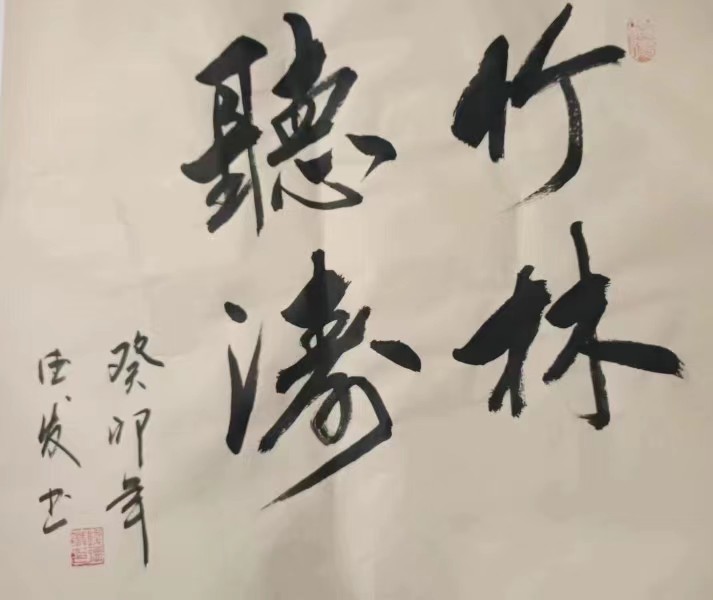 竹林
聽濤
癸卯年
发书